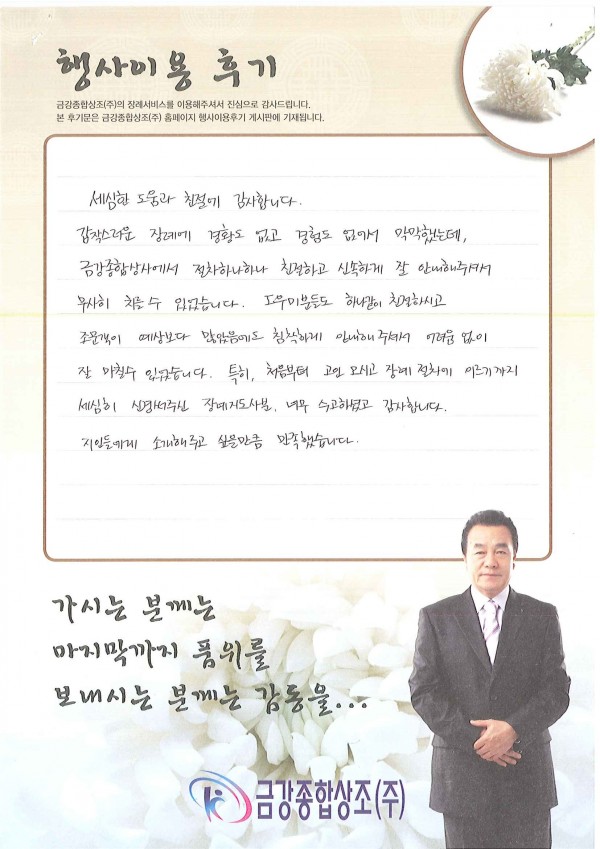 행사이용 후기
금강종합상조(주)의 장례서비스를 이용해주셔서 진심으로 감사드립니다.
본 후기문은 금강종합상조(주) 홈페이지 행사이용후기 게시판에 기재됩니다.
세심한 도움과 친절에 감사합니다.
갑작스러운 장례에 경황도 없고 경험도 없어서 막막했는데,
금강종합상사에서 절차하나하나 친절하고 신속하게 잘 안내해주셔서
무사히 치를수 있었습니다. 도우미분들도 하나같이 친절하시고
조문객이 예상보다 많았음에도 침착하게 안내해 주셔서 어려움 없이
잘 마칠수 있었습니다. 특히, 처음부터 고인 모시고 장례 절차에 이르기까지
세심히 신경써주신 장례지도사분, 너무 수고하셨고 감사합니다.
지인들에게 소개해주고 싶을만큼 만족했습니다.
가시는 분께는
마지막까지 품위를
보내시는 분께는 감동을...
금강종합상조(주)